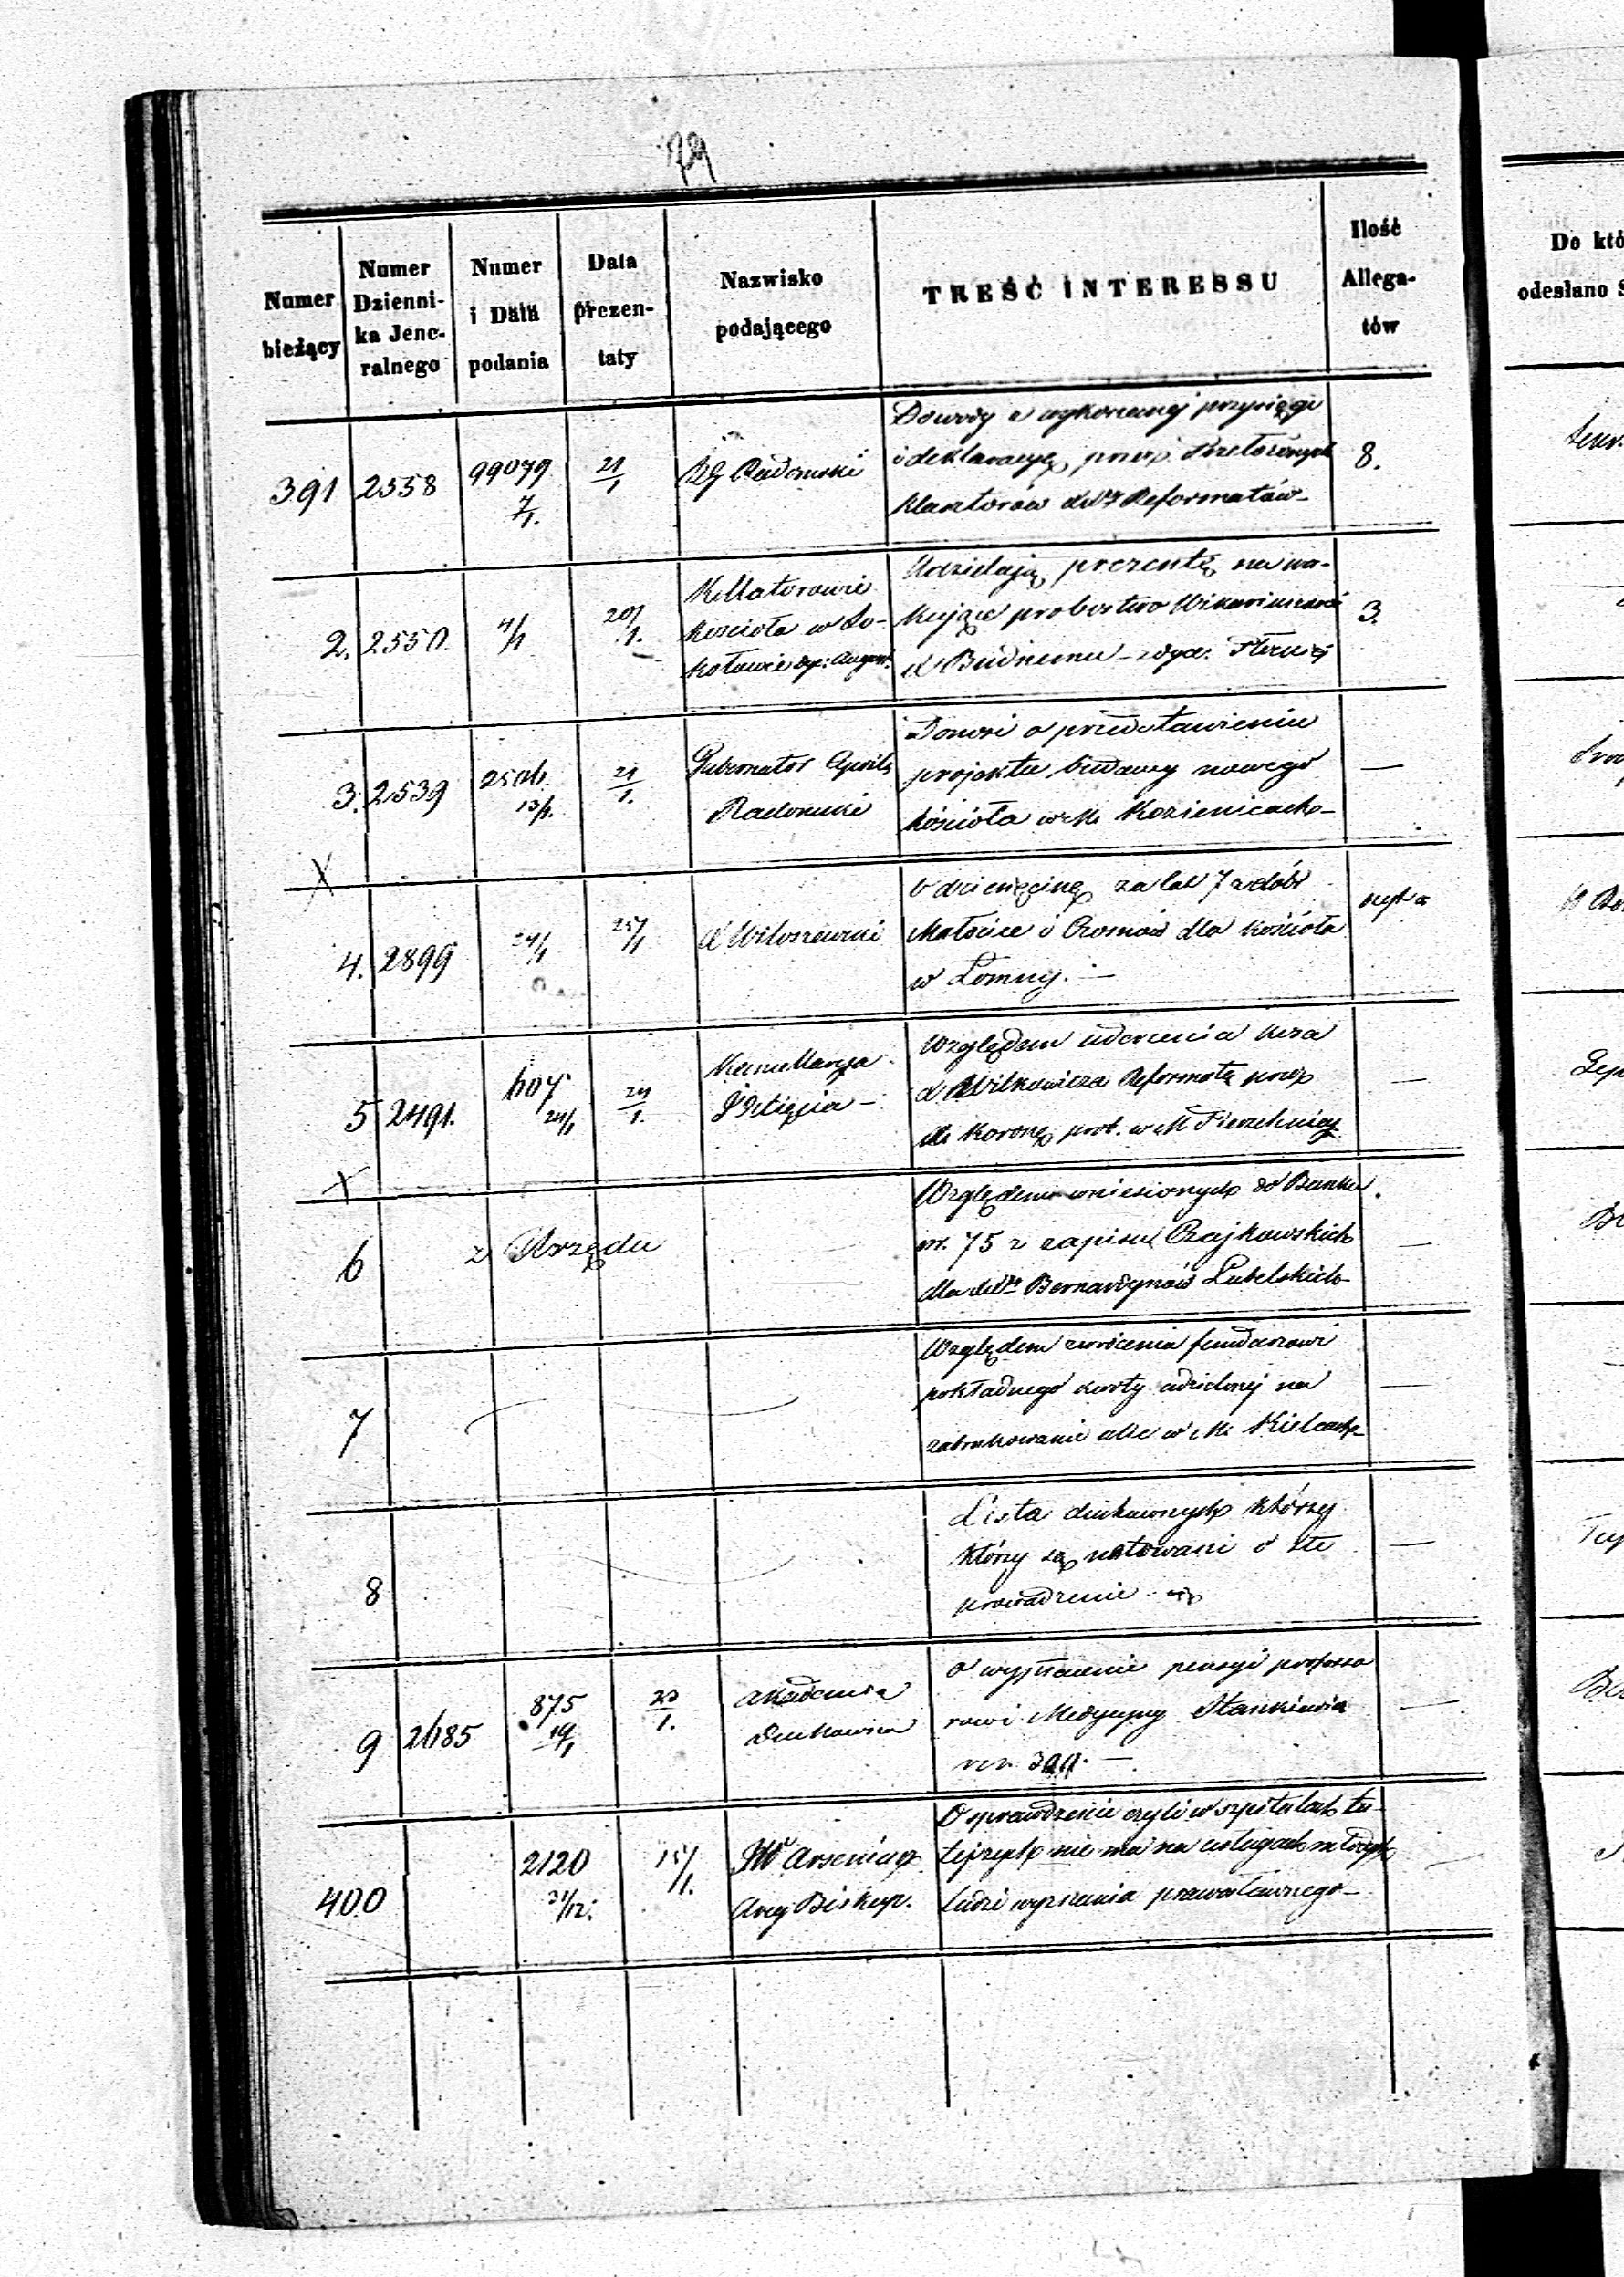 79
Numer bieżący
Numer Dzienni-ka Jene-ralnego
Numer i Data podania
Data prezen-taty
Nazwisko podającego
TREŚĆ INTERESSU
Ilość Allega-tów
Do któ
odesłano S
391 2558 99079 7/1. 21/1 Rząd Radomski
Dowody o wykonanej przysięgi
i deklaracyę przez Przełożonych
klasztorów Reformatów
8.
2. 2550. 4/1 20/1.
Kollatorowie
kościoła w So-
kołowie dyec: August.
Udzielają prezentę na wa-
kujące probostwo
X Budnemu
3.
3. 2539 13/1. 21/1.
Gubernator Cywilny
Radomski
Donosi o przedstawieniu
projektu budowy nowego
kościoła w M. Kozienicach
—
X
4. 2899 24/1 25/1
X Wiloszewski
O dziesięcinę za lat 7 z dóbr
Małocice i Czosnów dla kościoła
w Łomny. —
5 2491. 607 24/1 24/1.
Względem uderzenia
X Wilkowicza Reformatę przez
X. Koronę prob. w M
—
X
6 z Urzędu
Względem wniesionych do Banku
rs. 75 z zapisu Czajkowskich
dla Bernardynów Lubelskich
—
7
Względem zwrócenia funduszowi
pokładnego kwoty udzielonej na
zabrukowanie ulic w M. Kielcach
—
8
Lista duchownych którzy
którzy są notowani o złe
prowadzenie
—
9 2685 875 19/1 23/1.
Akademia
Duchowna
O wypłacenie pensyi professo
rowi Medycyny Stankiewicz
rs. 300. —
—
400 2120 31/12. 15/1.
JW Arseniusz
Arcy Biskup.
O sprawdzenie czyli w szpitalach tu-
tejszych nie ma na usługach młodych
ludzi wyznania prawosławnego